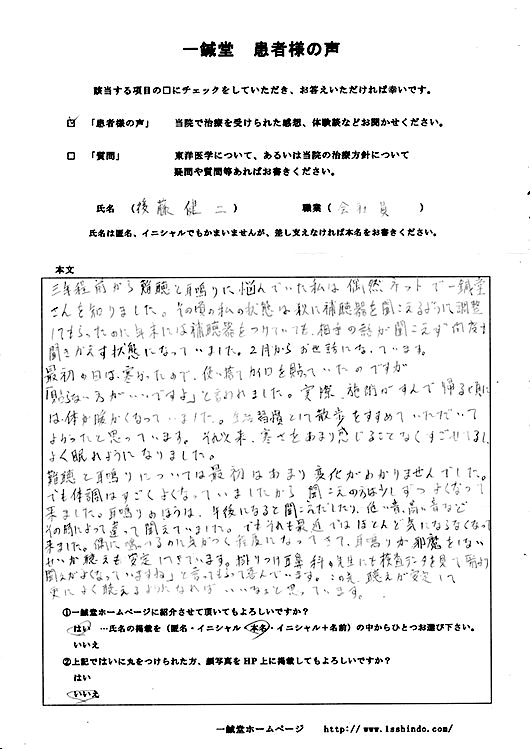 一鍼堂 患者様の声
該当する項目の□にチェックをしていただき、お答えいただければ幸いです。
☑ 「患者様の声」 当院で治療を受けられた感想、体験談などお聞かせください。
□ 「質問」 東洋医学について、あるいは当院の治療方針について
疑問や質問等あればお書きください。
氏名 (後藤 健二) 職業 (会社員)
氏名は匿名、イニシャルでもかまいませんが、差し支えなければ本名をお書きください。
本文
三年程前から難聴と耳鳴りに悩んでいた私は偶然ネットで一鍼堂
さんを知りました。その頃の私の状態は秋に補聴器を聞こえるように調整
してもらったのに年末には補聴器をつけていても、相手の話が聞こえず何度も
聞きかえす状態になっていました。2月からお世話になっています。
最初の日は寒かったので、使い捨てカイロを貼っていたのですが
「貼らない方がいいですよ」と言われました。実際、施術がすんで帰る時に
は体が暖かくなっていました。生活習慣として散歩をすすめていただいて
よかったと思っています。それ以来、寒さをあまり感じることなくすごせてるし、
よく眠れるようになりました。
難聴と耳鳴りについては最初はあまり変化がわかりませんでした。
でも体調はすごくよくなっていましたから 聞こえの方は少しずつよくなって
来ました。耳鳴りのほうは、午後になると聞こえだしたり、低い音、高い音など
その時によって違って聞えていました。でもそれも最近ではほとんど気にならなくなって
来ました。偶に鳴ってるのに気がつく程度になってきて、耳鳴りが邪魔をしない
せいか聴えも安定してきています。掛りつけ耳鼻科の先生にも検査データを見て「前より
聞えがよくなっていますね」と言ってもらって喜んでいます。この先、聴えが安定して
更によく聴えるようになれば いいなぁと思っています。
①一鍼堂ホームページに紹介させて頂いてもよろしいですか？
はい …氏名の掲載を (匿名・イニシャル・本名・イニシャル＋名前) の中からひとつお選び下さい。
いいえ
②上記ではいに丸をつけられた方、顔写真をHP上に掲載してもよろしいですか？
はい
いいえ
一鍼堂ホームページ http://www.1sshindo.com/